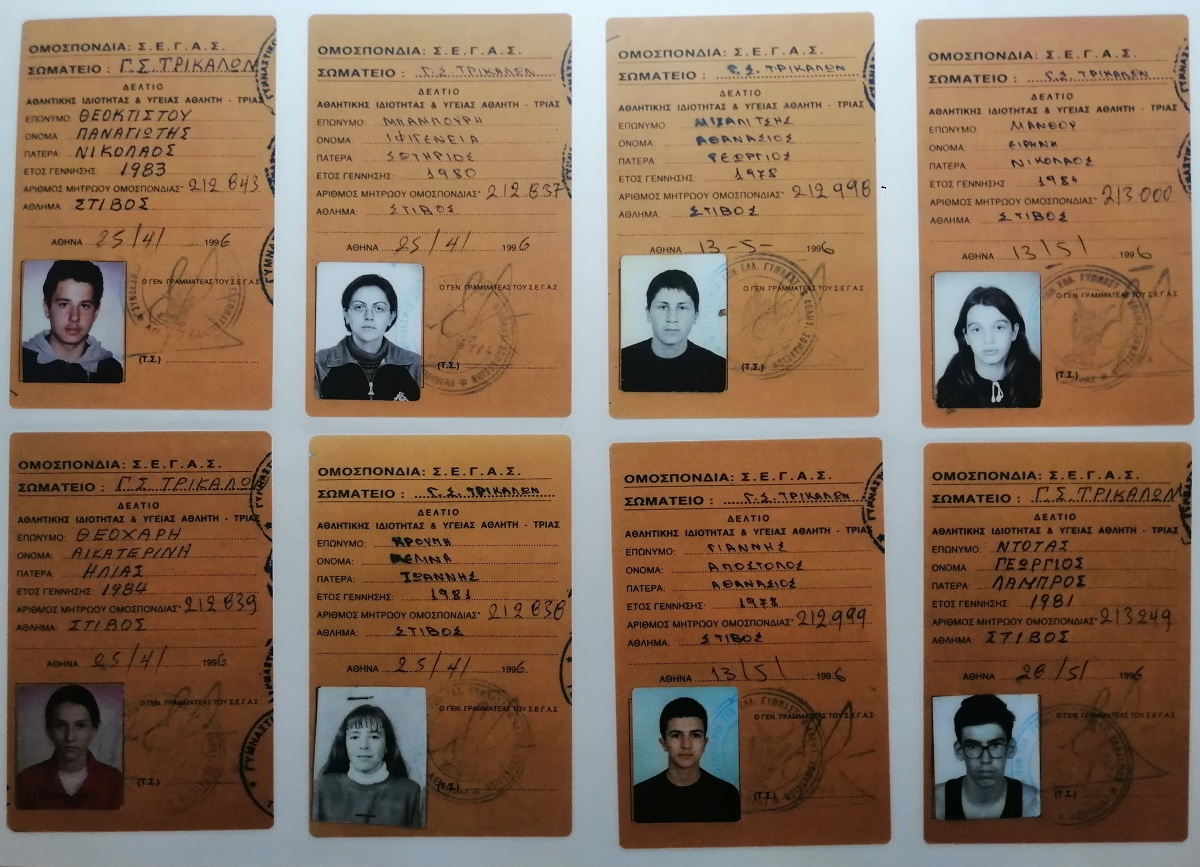 ΟΜΟΣΠΟΝΔΙΑ: Σ.Ε.Γ.Α.Σ.
ΣΩΜΑΤΕΙΟ : Γ.Σ. ΤΡΙΚΑΛΩΝ
ΔΕΛΤΙΟ
ΑΘΛΗΤΙΚΗΣ ΙΔΙΟΤΗΤΑΣ & ΥΓΕΙΑΣ ΑΘΛΗΤΗ - ΤΡΙΑΣ
ΕΠΩΝΥΜΟ: ΘΕΟΚΤΙΣΤΟΥ
ΟΝΟΜΑ: ΠΑΝΑΓΙΩΤΗΣ
ΠΑΤΕΡΑ: ΝΙΚΟΛΑΟΣ
ΕΤΟΣ ΓΕΝΝΗΣΗΣ: 1983
ΑΡΙΘΜΟΣ ΜΗΤΡΩΟΥ ΟΜΟΣΠΟΝΔΙΑΣ: 212843
ΑΘΛΗΜΑ: ΣΤΙΒΟΣ
ΑΘΗΝΑ 25/4/ 1996
Ο ΓΕΝ. ΓΡΑΜΜΑΤΕΑΣ ΤΟΥ Σ.Ε.Γ.Α.Σ
(Τ.Σ.)
ΟΜΟΣΠΟΝΔΙΑ: Σ.Ε.Γ.Α.Σ.
ΣΩΜΑΤΕΙΟ : Γ.Σ. ΤΡΙΚΑΛΩΝ
ΔΕΛΤΙΟ
ΑΘΛΗΤΙΚΗΣ ΙΔΙΟΤΗΤΑΣ & ΥΓΕΙΑΣ ΑΘΛΗΤΗ - ΤΡΙΑΣ
ΕΠΩΝΥΜΟ: ΜΠΑΜΠΟΥΡΗ
ΟΝΟΜΑ: ΙΦΙΓΕΝΕΙΑ
ΠΑΤΕΡΑ: ΣΩΤΗΡΙΟΣ
ΕΤΟΣ ΓΕΝΝΗΣΗΣ: 1980
ΑΡΙΘΜΟΣ ΜΗΤΡΩΟΥ ΟΜΟΣΠΟΝΔΙΑΣ: 212837
ΑΘΛΗΜΑ: ΣΤΙΒΟΣ
ΑΘΗΝΑ 25/4/ 1996
Ο ΓΕΝ. ΓΡΑΜΜΑΤΕΑΣ ΤΟΥ Σ.Ε.Γ.Α.Σ
(Τ.Σ.)
ΟΜΟΣΠΟΝΔΙΑ: Σ.Ε.Γ.Α.Σ.
ΣΩΜΑΤΕΙΟ : Γ.Σ. ΤΡΙΚΑΛΩΝ
ΔΕΛΤΙΟ
ΑΘΛΗΤΙΚΗΣ ΙΔΙΟΤΗΤΑΣ & ΥΓΕΙΑΣ ΑΘΛΗΤΗ - ΤΡΙΑΣ
ΕΠΩΝΥΜΟ: ΜΙΧΑΛΙΤΣΗΣ
ΟΝΟΜΑ: ΑΘΑΝΑΣΙΟΣ
ΠΑΤΕΡΑ: ΓΕΩΡΓΙΟΣ
ΕΤΟΣ ΓΕΝΝΗΣΗΣ: 1978
ΑΡΙΘΜΟΣ ΜΗΤΡΩΟΥ ΟΜΟΣΠΟΝΔΙΑΣ: 212998
ΑΘΛΗΜΑ: ΣΤΙΒΟΣ
ΑΘΗΝΑ 13-5- 1996
Ο ΓΕΝ. ΓΡΑΜΜΑΤΕΑΣ ΤΟΥ Σ.Ε.Γ.Α.Σ
(Τ.Σ.)
ΟΜΟΣΠΟΝΔΙΑ: Σ.Ε.Γ.Α.Σ.
ΣΩΜΑΤΕΙΟ : Γ.Σ. ΤΡΙΚΑΛΩΝ
ΔΕΛΤΙΟ
ΑΘΛΗΤΙΚΗΣ ΙΔΙΟΤΗΤΑΣ & ΥΓΕΙΑΣ ΑΘΛΗΤΗ - ΤΡΙΑΣ
ΕΠΩΝΥΜΟ: ΜΑΝΘΟΥ
ΟΝΟΜΑ: ΕΙΡΗΝΗ
ΠΑΤΕΡΑ: ΝΙΚΟΛΑΟΣ
ΕΤΟΣ ΓΕΝΝΗΣΗΣ: 1984
ΑΡΙΘΜΟΣ ΜΗΤΡΩΟΥ ΟΜΟΣΠΟΝΔΙΑΣ: 213000
ΑΘΛΗΜΑ: ΣΤΙΒΟΣ
ΑΘΗΝΑ 13/5/ 1996
Ο ΓΕΝ. ΓΡΑΜΜΑΤΕΑΣ ΤΟΥ Σ.Ε.Γ.Α.Σ
(Τ.Σ.)
ΟΜΟΣΠΟΝΔΙΑ: Σ.Ε.Γ.Α.Σ.
ΣΩΜΑΤΕΙΟ : Γ.Σ. ΤΡΙΚΑΛΩ
ΔΕΛΤΙΟ
ΑΘΛΗΤΙΚΗΣ ΙΔΙΟΤΗΤΑΣ & ΥΓΕΙΑΣ ΑΘΛΗΤΗ - ΤΡΙΑΣ
ΕΠΩΝΥΜΟ: ΘΕΟΧΑΡΗ
ΟΝΟΜΑ: ΑΙΚΑΤΕΡΙΝΗ
ΠΑΤΕΡΑ: ΗΛΙΑΣ
ΕΤΟΣ ΓΕΝΝΗΣΗΣ: 1984
ΑΡΙΘΜΟΣ ΜΗΤΡΩΟΥ ΟΜΟΣΠΟΝΔΙΑΣ: 212839
ΑΘΛΗΜΑ: ΣΤΙΒΟΣ
ΑΘΗΝΑ 25/4/ 1996
Ο ΓΕΝ. ΓΡΑΜΜΑΤΕΑΣ ΤΟΥ Σ.Ε.Γ.Α.Σ
(Τ.Σ.)
ΟΜΟΣΠΟΝΔΙΑ: Σ.Ε.Γ.Α.Σ.
ΣΩΜΑΤΕΙΟ : Γ.Σ. ΤΡΙΚΑΛΩΝ
ΔΕΛΤΙΟ
ΑΘΛΗΤΙΚΗΣ ΙΔΙΟΤΗΤΑΣ & ΥΓΕΙΑΣ ΑΘΛΗΤΗ - ΤΡΙΑΣ
ΕΠΩΝΥΜΟ:
ΟΝΟΜΑ: ΜΕΛΙΝΑ
ΠΑΤΕΡΑ: ΙΩΑΝΝΗΣ
ΕΤΟΣ ΓΕΝΝΗΣΗΣ: 1981
ΑΡΙΘΜΟΣ ΜΗΤΡΩΟΥ ΟΜΟΣΠΟΝΔΙΑΣ: 212838
ΑΘΛΗΜΑ: ΣΤΙΒΟΣ
ΑΘΗΝΑ 25/4/ 1996
Ο ΓΕΝ. ΓΡΑΜΜΑΤΕΑΣ ΤΟΥ Σ.Ε.Γ.Α.Σ
(Τ.Σ.)
ΟΜΟΣΠΟΝΔΙΑ: Σ.Ε.Γ.Α.Σ.
ΣΩΜΑΤΕΙΟ : Γ.Σ. ΤΡΙΚΑΛΩΝ
ΔΕΛΤΙΟ
ΑΘΛΗΤΙΚΗΣ ΙΔΙΟΤΗΤΑΣ & ΥΓΕΙΑΣ ΑΘΛΗΤΗ - ΤΡΙΑΣ
ΕΠΩΝΥΜΟ: ΓΙΑΝΝΗΣ
ΟΝΟΜΑ: ΑΠΟΣΤΟΛΟΣ
ΠΑΤΕΡΑ: ΑΘΑΝΑΣΙΟΣ
ΕΤΟΣ ΓΕΝΝΗΣΗΣ: 1978
ΑΡΙΘΜΟΣ ΜΗΤΡΩΟΥ ΟΜΟΣΠΟΝΔΙΑΣ: 212999
ΑΘΛΗΜΑ: ΣΤΙΒΟΣ
ΑΘΗΝΑ 13/5/ 1996
Ο ΓΕΝ. ΓΡΑΜΜΑΤΕΑΣ ΤΟΥ Σ.Ε.Γ.Α.Σ
(Τ.Σ.)
ΟΜΟΣΠΟΝΔΙΑ: Σ.Ε.Γ.Α.Σ.
ΣΩΜΑΤΕΙΟ : Γ.Σ. ΤΡΙΚΑΛΩΝ
ΔΕΛΤΙΟ
ΑΘΛΗΤΙΚΗΣ ΙΔΙΟΤΗΤΑΣ & ΥΓΕΙΑΣ ΑΘΛΗΤΗ - ΤΡΙΑΣ
ΕΠΩΝΥΜΟ: ΝΤΟΤΑΣ
ΟΝΟΜΑ ΓΕΩΡΓΙΟΣ
ΠΑΤΕΡΑ: ΛΑΜΠΡΟΣ
ΕΤΟΣ ΓΕΝΝΗΣΗΣ: 1981
ΑΡΙΘΜΟΣ ΜΗΤΡΩΟΥ ΟΜΟΣΠΟΝΔΙΑΣ: 213249
ΑΘΛΗΜΑ: ΣΤΙΒΟΣ
ΑΘΗΝΑ 28/5/ 1996
Ο ΓΕΝ. ΓΡΑΜΜΑΤΕΑΣ ΤΟΥ Σ.Ε.Γ.Α.Σ
(Τ.Σ.)